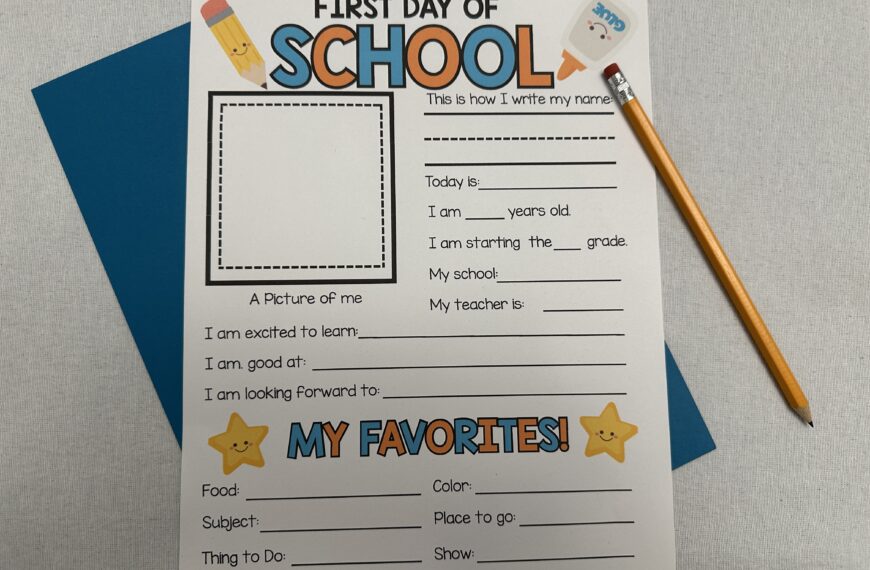 FIRST DAY OF
SCHOOL
GLUE
This is how I write my name:
Today is:
I am _____ years old.
I am starting the ____ grade.
My school:
My teacher is:
A Picture of me
I am excited to learn:
I am. good at:
I am looking forward to:
MY FAVORITES!
Food:
Color:
Subject:
Place to go:
Thing to Do:
Show: